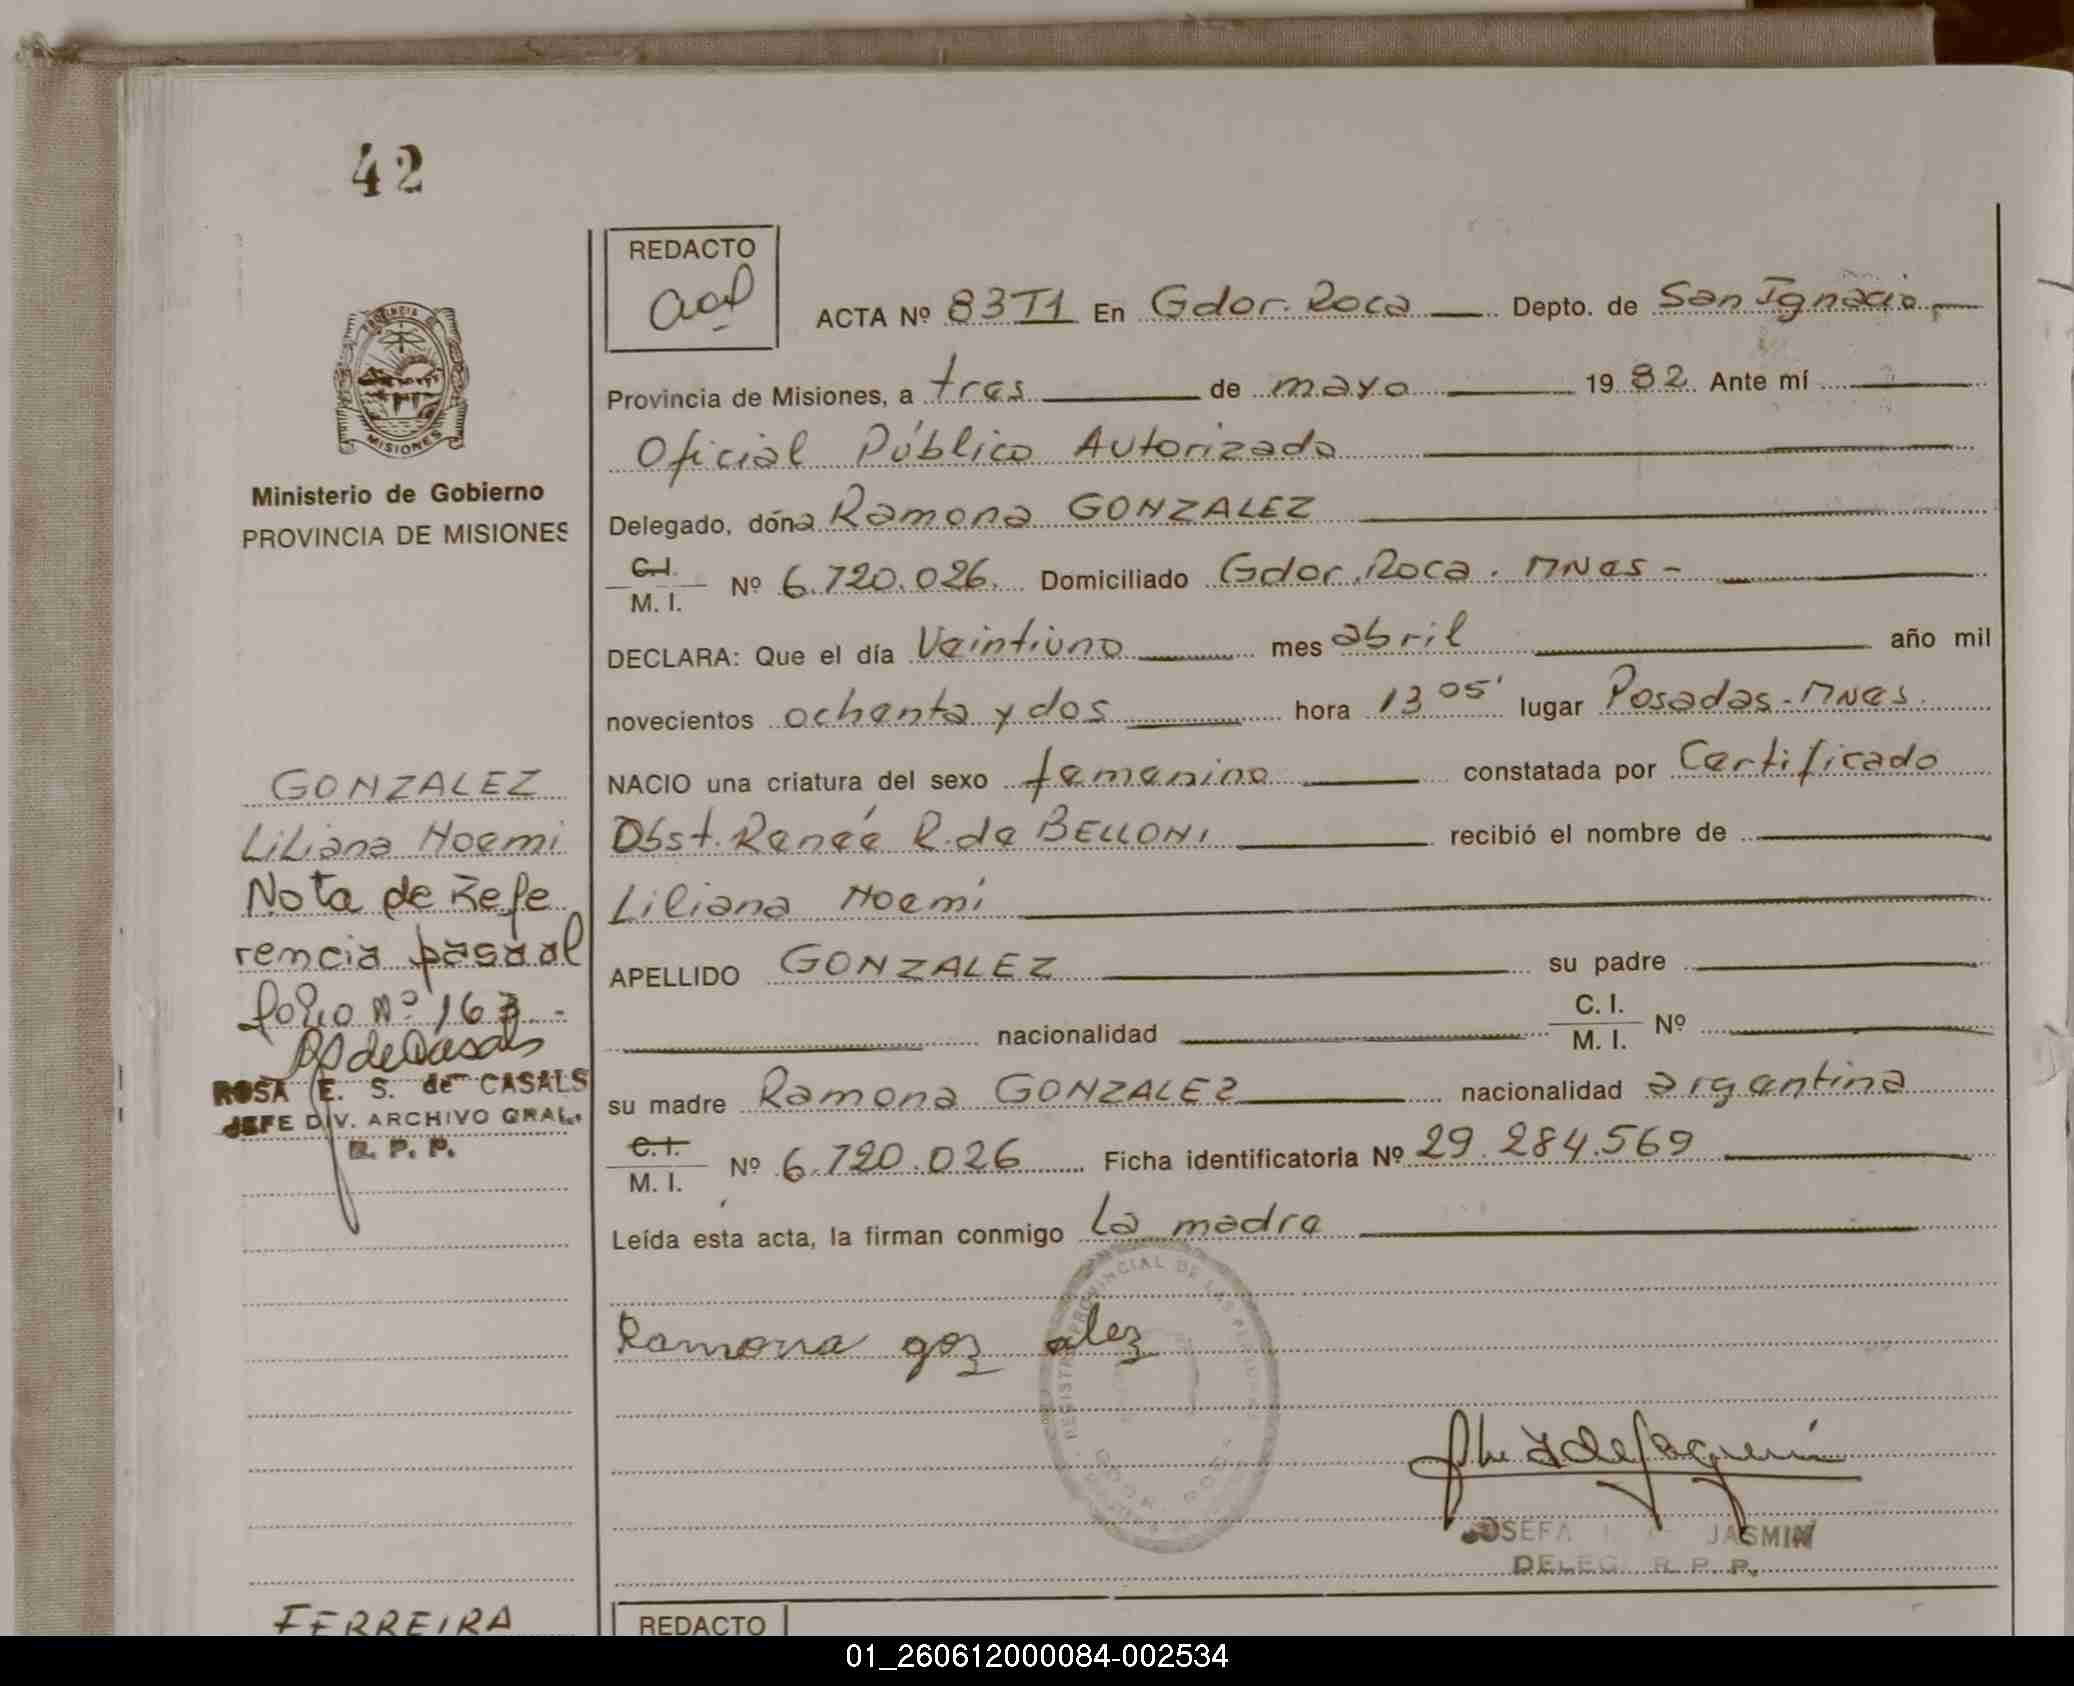 42
REDACTO
ACTA Nº 83T1 En Gdor. Roca Depto. de San Ignacio
Provincia de Misiones, a tres de mayo 1982 Ante mí
Oficial Público Autorizado
Delegado, dóna Ramona GONZALEZ
C.I.
M. I. Nº 6.720.026. Domiciliado Gdor. Roca. Mnes -
DECLARA: Que el día Veintiuno mes abril año mil
novecientos ochenta y dos hora 13 05' lugar Posadas - Mnes.
NACIO una criatura del sexo femenino constatada por Certificado
Obst. Renée R. de BELLONI recibió el nombre de
Liliana Noemí
APELLIDO GONZALEZ su padre
nacionalidad C. I.
M. I. Nº
su madre Ramona GONZALEZ nacionalidad argentina
C.I.
M. I. Nº 6.720.026 Ficha identificatoria Nº 29.284.569
Leída esta acta, la firman conmigo La madre
Ramona goz alez
REGISTRO PROVINCIAL DE LAS PERSONAS
GDOR. ROCA
JOSEFA JASMIN
DELEG. R. P. P.
MISIONES
Ministerio de Gobierno
PROVINCIA DE MISIONES
GONZALEZ
Liliana Noemi
Nota de Refe
rencia pasa al
folio Nº 163 -
ROSA E. S. de CASALS
JEFE DIV. ARCHIVO GRAL.
R. P. P.
FERREIRA
REDACTO
01_260612000084-002534